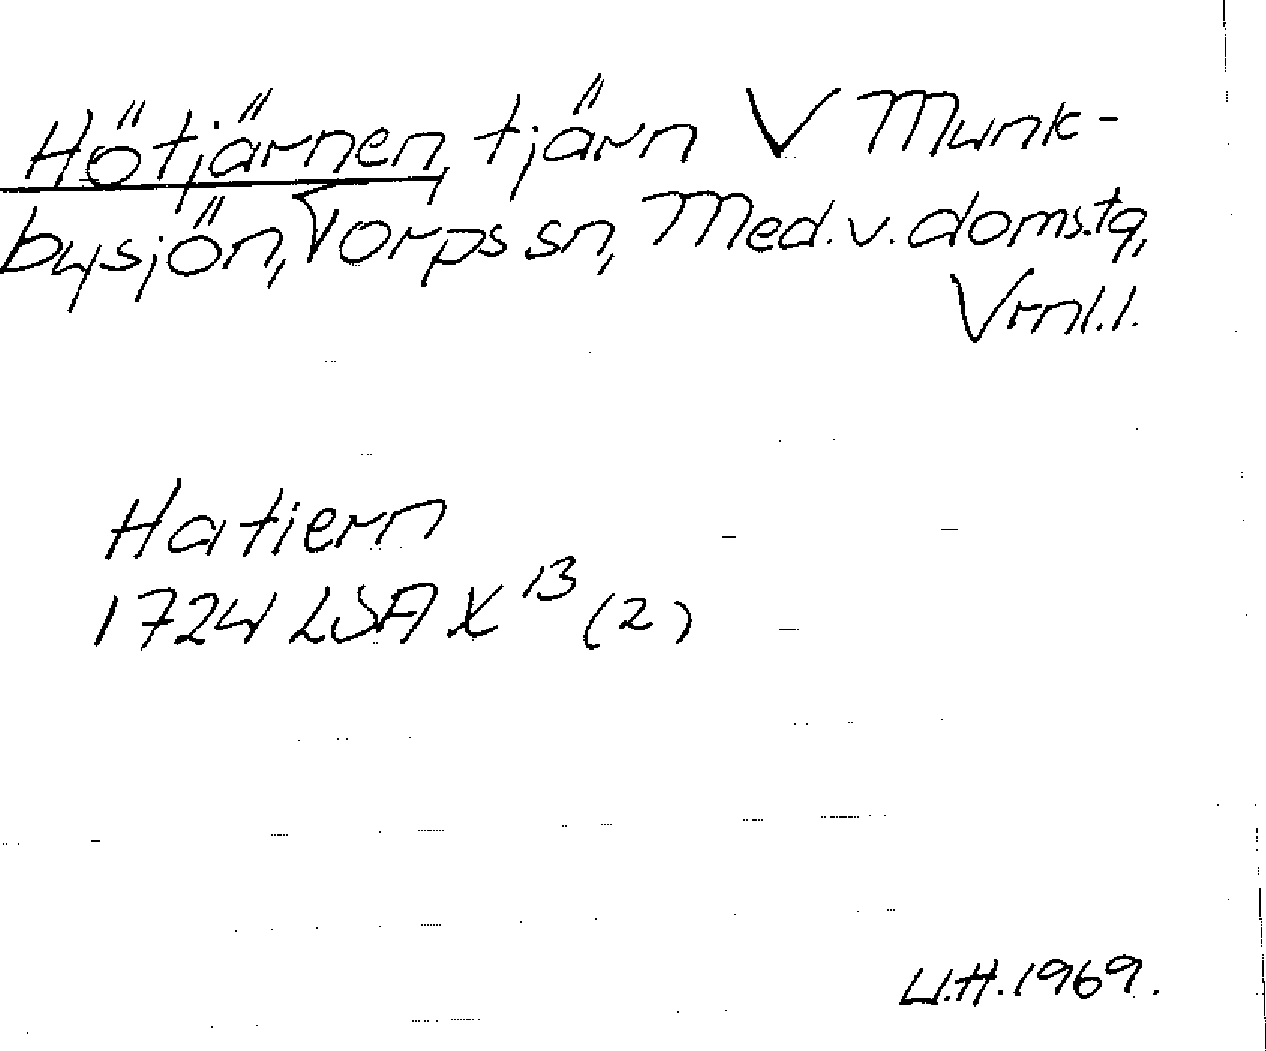 Hötjärnen, tjärn V Munk-
bysjön, Torps sn, Med.v.doms.tg,
Vrnl.l.
Hatiern
1724 LSA X¹³ (2)
U.H. 1969.